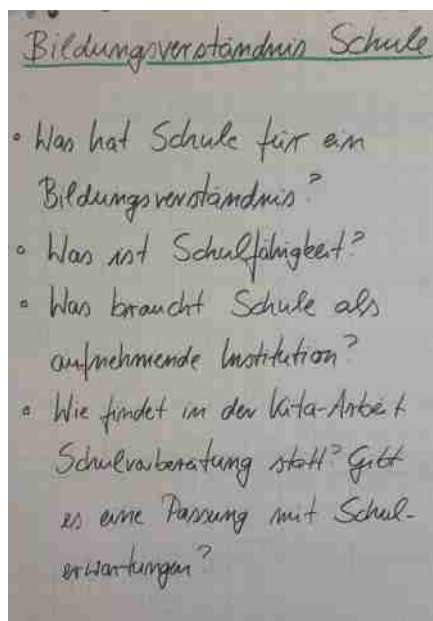 Bildungsverständnis Schule
• Was hat Schule für ein
Bildungsverständnis?
• Was ist Schulfähigkeit?
• Was braucht Schule als
aufnehmende Institution?
• Wie findet in der Kita-Arbeit
Schulvorbereitung statt? Gibt
es eine Passung mit Schul-
erwartungen?